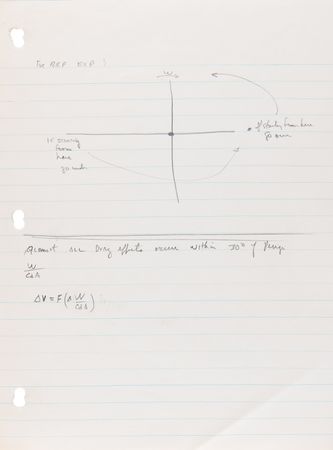 W
If starting from here
go over
If starting
from
here
go under
Almost all Drag effects occur within 30° of Perigee
W
CdA
ΔV = F(Δ W
CdA)